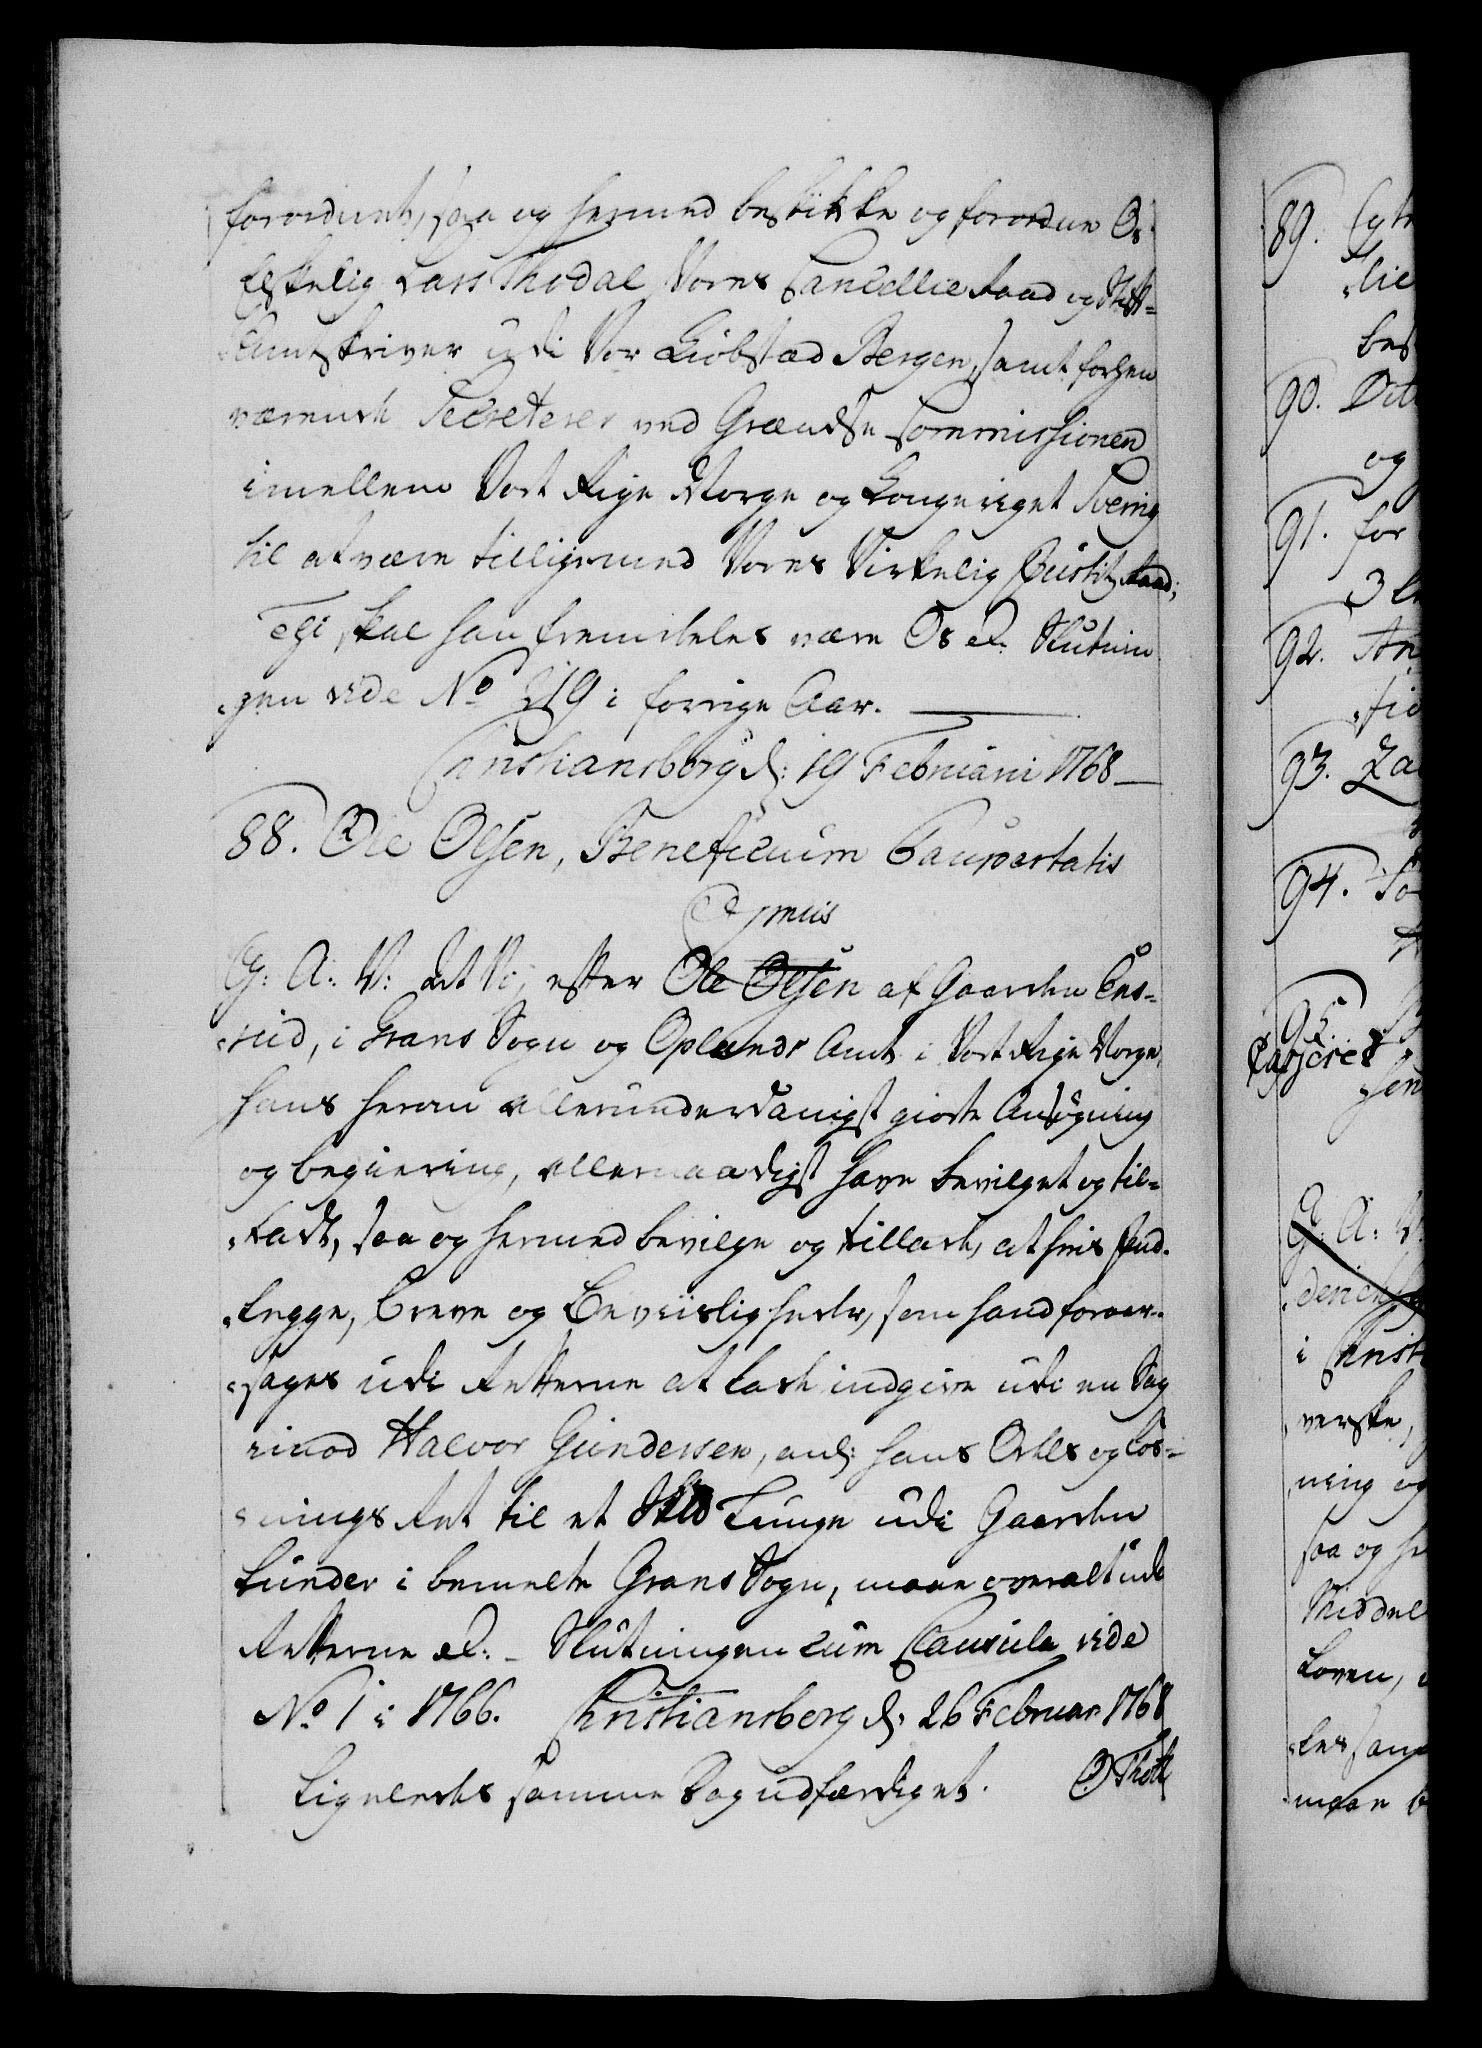 forordnet, saa og hermed beskikke og forordne Os
Elskelig Lars Thodal Vores Cancellie Raad og Stift-
Amtskriver udi Vor Kiøbstæd Bergen, samt forhen
værende Secreterer ved Grændse Commissionen
imellem Vort Rige Norge og Kongeriget Sverrig
til at være tilligemed Vores Virkelig Justitz Raad;
Thi skal han fremdeles være Os etc. Slutnin-
gen vide No 219 i forrige Aar.
Christiansborg d: 19 Februarii 1768
88. Ole Olsen, Beneficium Paupertatis
G: A: V: At Vi, efter Ole Olsen af Gaarden
rud, i Grans Sogn og Oplands Amt i Vort Rige Norge,
hans herom allerunderdanigst giorte Ansøgning
og begiering, allernaadigst have bevilget og til-
ladt, saa og hermed bevilge og tillade, at hvis Ind-
legge, Breve og Beviisligheder, som hand foraar-
sages udi Retterne at lade indgive udi en Sag
imod Halvor Gundersen, ang: hans Odels og Løs-
nings Ret til et Støkke Hunge udi Gaarden
Lunder i bemelte Grans Sogn, maae overalt udi
Retterne etc: - Slutningen cum Clausula vide
No 1 i 1766. Christiansborg d. 26 Februar 1768
Ligeledes samme Dag udfærdiget. O Thott
89.
90.
og
91. for
92.
93.
94.
95.
G: A: V:
i Christ
ning og
saa og he
Middel
Loven,
maae b